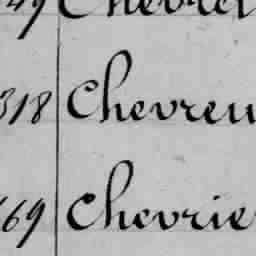 49 Chevret
318 Chevreu
669 Chevrie